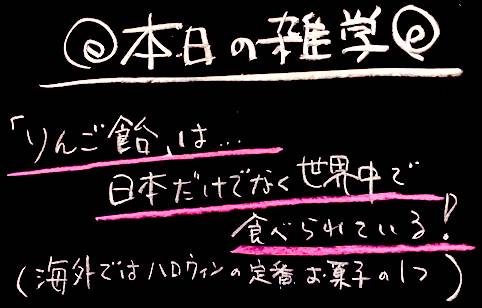 ◎本日の雑学◎
「りんご飴」は…
日本だけでなく世界中で
食べられている!
(海外ではハロウィンの定番お菓子の1つ)